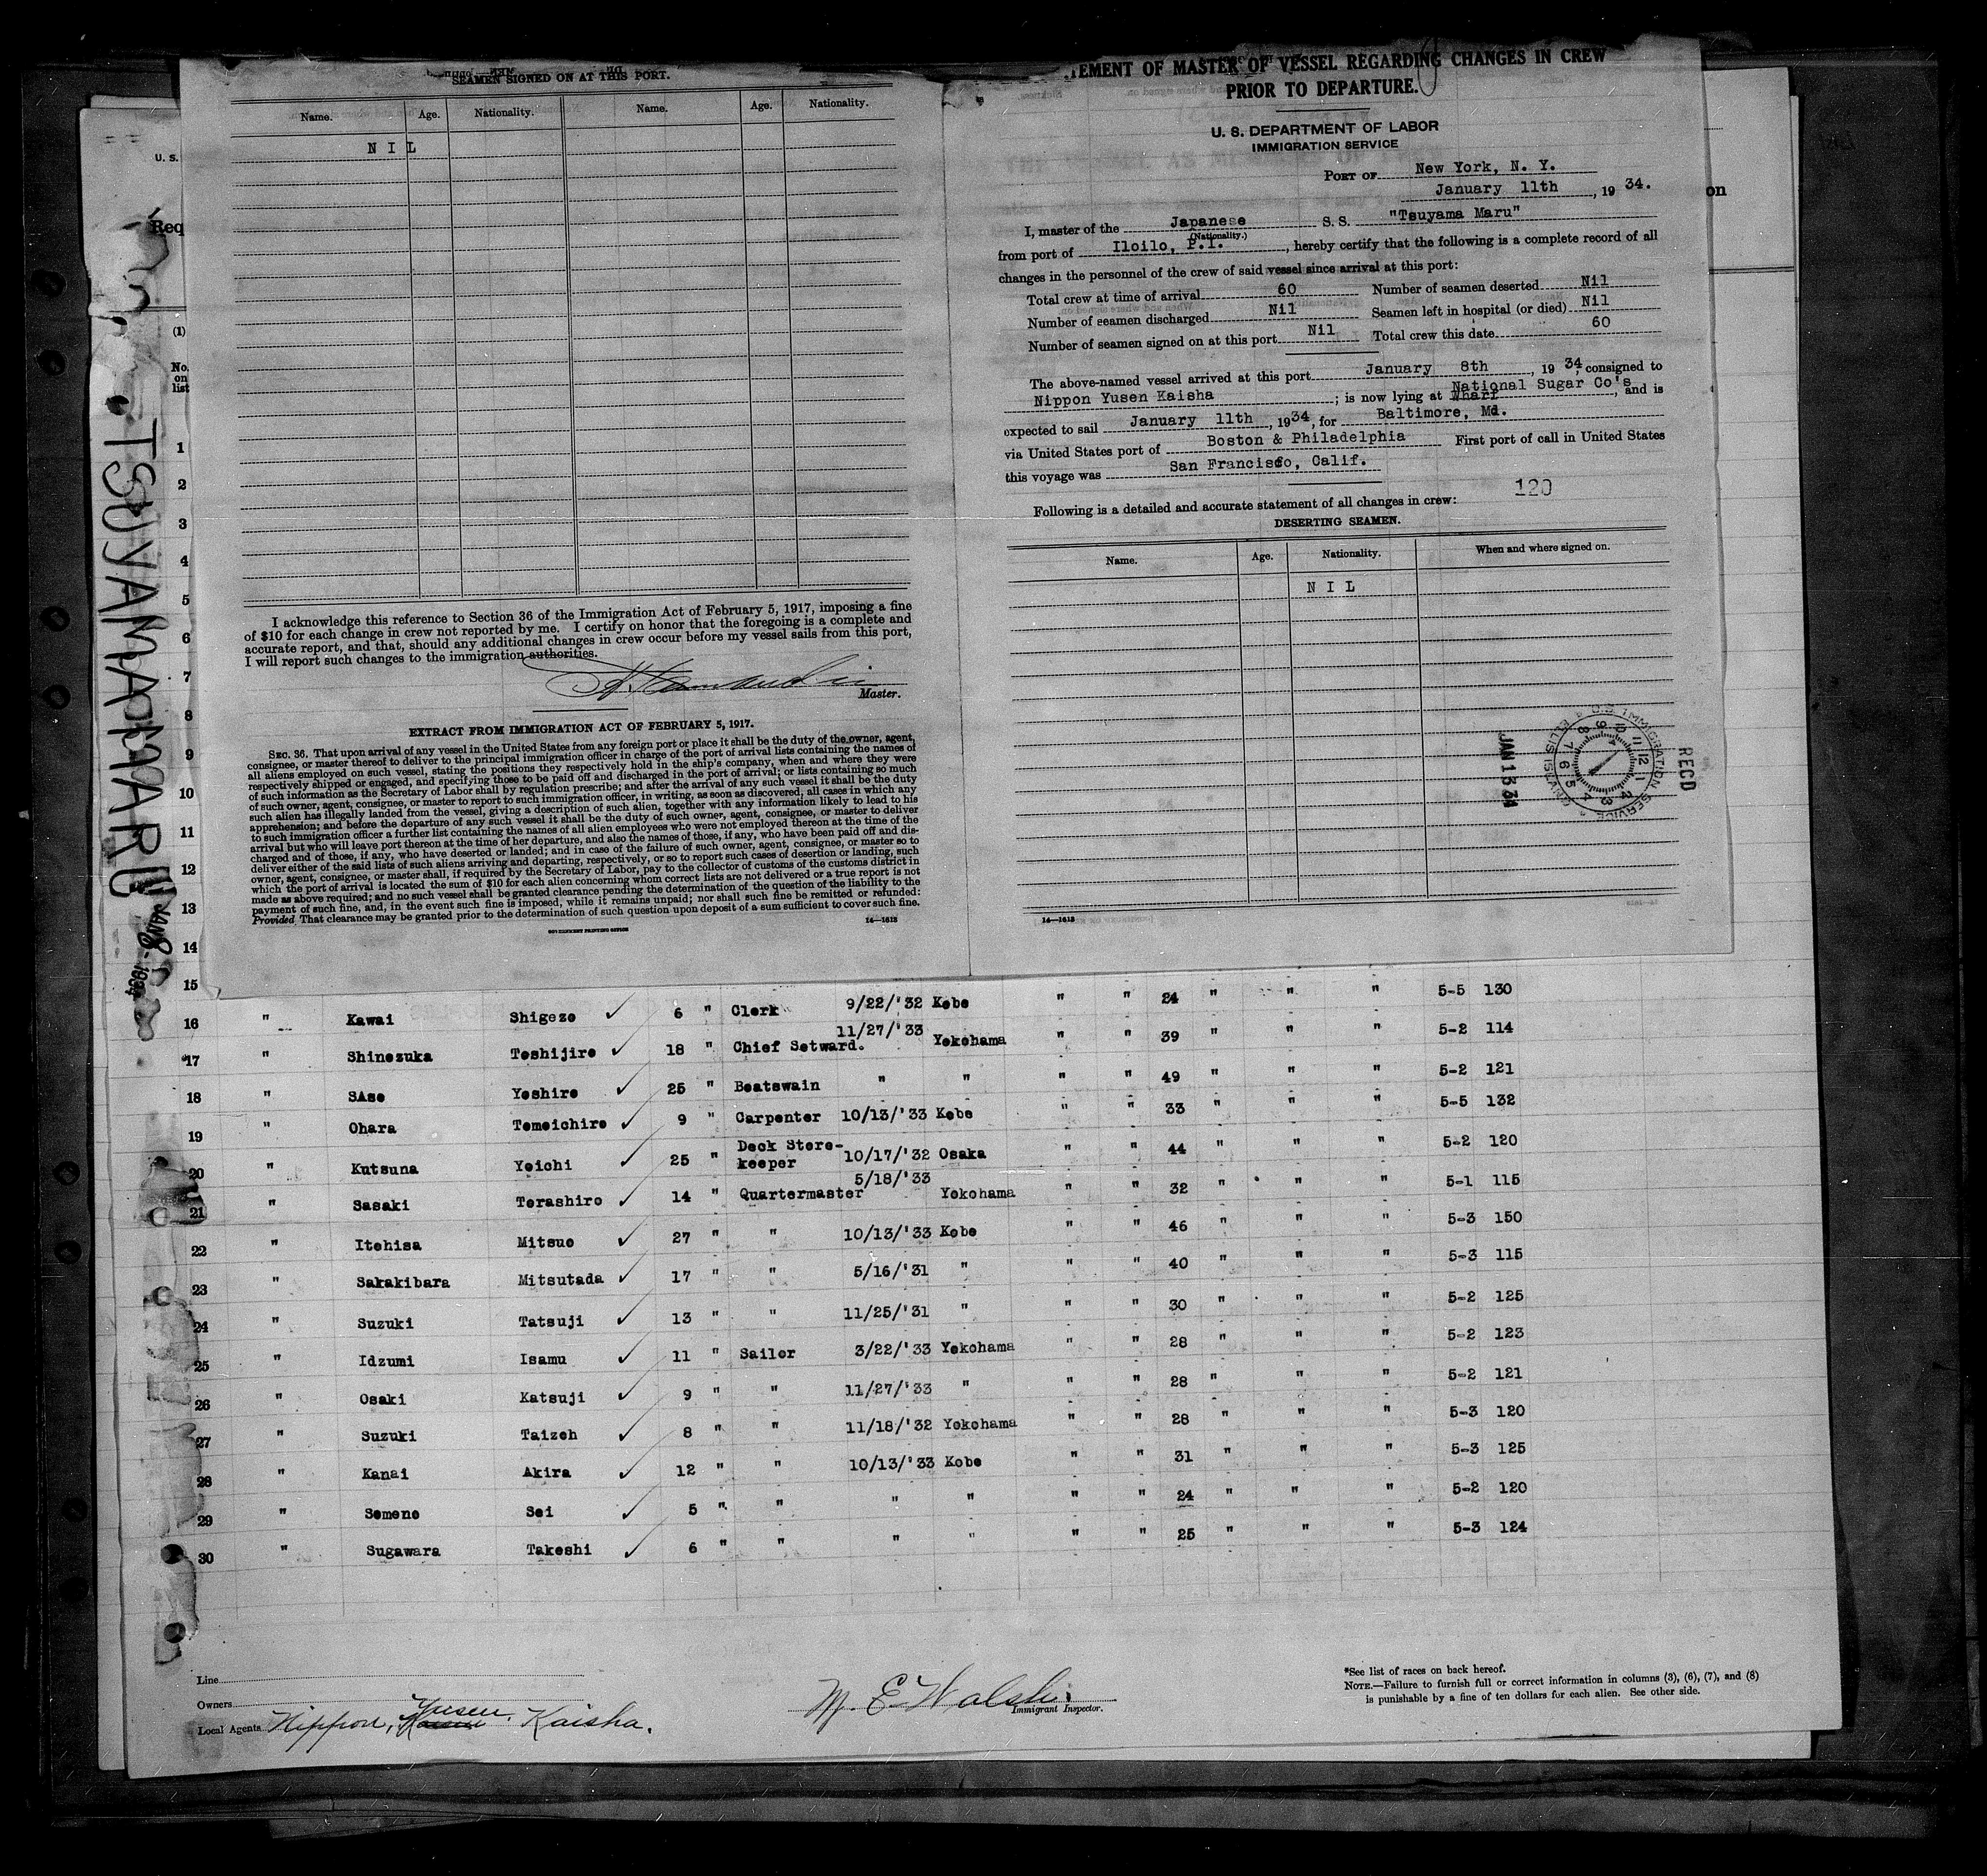 SEAMEN SIGNED ON AT THIS PORT.
Name. Age. Nationality. Name. Age. Nationality.
N I L
I acknowledge this reference to Section 36 of the Immigration Act of February 5, 1917, imposing a fine
of $10 for each change in crew not reported by me. I certify on honor that the foregoing is a complete and
accurate report, and that, should any additional changes in crew occur before my vessel sails from this port,
I will report such changes to the immigration authorities.
Master.
EXTRACT FROM IMMIGRATION ACT OF FEBRUARY 5, 1917.
SEC. 36. That upon arrival of any vessel in the United States from any foreign port or place it shall be the duty of the owner, agent,
consignee, or master thereof to deliver to the principal immigration officer in charge of the port of arrival lists containing the names of
all aliens employed on such vessel, stating the positions they respectively hold in the ship's company, when and where they were
respectively shipped or engaged, and specifying those to be paid off and discharged in the port of arrival; or lists containing so much
of such information as the Secretary of Labor shall by regulation prescribe; and after the arrival of any such vessel it shall be the duty
of such owner, agent, consignee, or master to report to such immigration officer, in writing, as soon as discovered, all cases in which any
such alien has illegally landed from the vessel, giving a description of such alien, together with any information likely to lead to his
apprehension; and before the departure of any such vessel it shall be the duty of such owner, agent, consignee, or master to deliver
to such immigration officer a further list containing the names of all alien employees who were not employed thereon at the time of the
arrival but who will leave port thereon at the time of her departure, and also the names of those, if any, who have been paid off and dis-
charged and of those, if any, who have deserted or landed; and in case of the failure of such owner, agent, consignee, or master so to
deliver either of the said lists of such aliens arriving and departing, respectively, or so to report such cases of desertion or landing, such
owner, agent, consignee, or master shall, if required by the Secretary of Labor, pay to the collector of customs of the customs district in
which the port of arrival is located the sum of $10 for each alien concerning whom correct lists are not delivered or a true report is not
made as above required; and no such vessel shall be granted clearance pending the determination of the question of the liability to the
payment of such fine, and, in the event such fine is imposed, while it remains unpaid; nor shall such fine be remitted or refunded:
Provided That clearance may be granted prior to the determination of such question upon deposit of a sum sufficient to cover such fine.
14—1613
GOVERNMENT PRINTING OFFICE
TEMENT OF MASTER OF VESSEL REGARDING CHANGES IN CREW
PRIOR TO DEPARTURE.
U. S. DEPARTMENT OF LABOR
IMMIGRATION SERVICE
PORT OF New York, N. Y.
January 11th, 19 34.
I, master of the Japanese S. S. "Tsuyama Maru"
(Nationality.)
from port of Iloilo, P.I., hereby certify that the following is a complete record of all
changes in the personnel of the crew of said vessel since arrival at this port:
Total crew at time of arrival 60 Number of seamen deserted Nil
Number of seamen discharged Nil Seamen left in hospital (or died) Nil
Number of seamen signed on at this port Nil Total crew this date 60
The above-named vessel arrived at this port January 8th, 19 34, consigned to
Nippon Yusen Kaisha; is now lying at National Sugar Co's Wharf, and is
expected to sail January 11th, 1934, for Baltimore, Md.
via United States port of Boston & Philadelphia First port of call in United States
this voyage was San Francisco, Calif.
120
Following is a detailed and accurate statement of all changes in crew:
DESERTING SEAMEN.
Name. Age. Nationality. When and where signed on.
N I L
RECD
U.S. IMMIGRATION SERVICE
JAN 13 34
14—1613
U. S.
Req
on
(1)
No.
on
list
TSUYAMA MARU
JAN 8 - 1934
1
2
3
4
5
6
7
8
9
10
11
12
13
14
15
16 " Kawai Shigezo ✓ 6 " Clerk 9/22/'32 Kobe " " 24 " " " 5-5 130
17 " Shinozuka Toshijiro ✓ 18 " Chief Setward. 11/27/'33 Yokohama " " 39 " " " 5-2 114
18 " SAso Yoshiro ✓ 25 " Boatswain " " " " 49 " " " 5-2 121
19 " Ohara Tomoichiro ✓ 9 " Carpenter 10/13/'33 Kobe " " 33 " " " 5-5 132
20 " Kutsuna Yoichi ✓ 25 " Deck Store-keeper 10/17/'32 Osaka " " 44 " " " 5-2 120
21 " Sasaki Torashiro ✓ 14 " Quartermaster 5/18/'33 Yokohama " " 32 " " " 5-1 115
22 " Itohisa Mitsuo ✓ 27 " " 10/13/'33 Kobe " " 46 " " " 5-3 150
23 " Sakakibara Mitsutada ✓ 17 " " 5/16/'31 " " " 40 " " " 5-3 115
24 " Suzuki Tatsuji ✓ 13 " " 11/25/'31 " " " 30 " " " 5-2 125
25 " Idzumi Isamu ✓ 11 " Sailor 3/22/'33 Yokohama " " 28 " " " 5-2 123
26 " Osaki Katsuji ✓ 9 " " 11/27/'33 " " " 28 " " " 5-2 121
27 " Suzuki Taizoh ✓ 8 " " 11/18/'32 Yokohama " " 28 " " " 5-3 120
28 " Kanai Akira ✓ 12 " " 10/13/'33 Kobe " " 31 " " " 5-3 125
29 " Someno Sei ✓ 5 " " " " " " 24 " " " 5-2 120
30 " Sugawara Takeshi ✓ 6 " " " " " " 25 " " " 5-3 124
Line
Owners
Local Agents Nippon, Yusen Kaisha.
M. E. Walsh
Immigrant Inspector.
*See list of races on back hereof.
NOTE.—Failure to furnish full or correct information in columns (3), (6), (7), and (8)
is punishable by a fine of ten dollars for each alien. See other side.